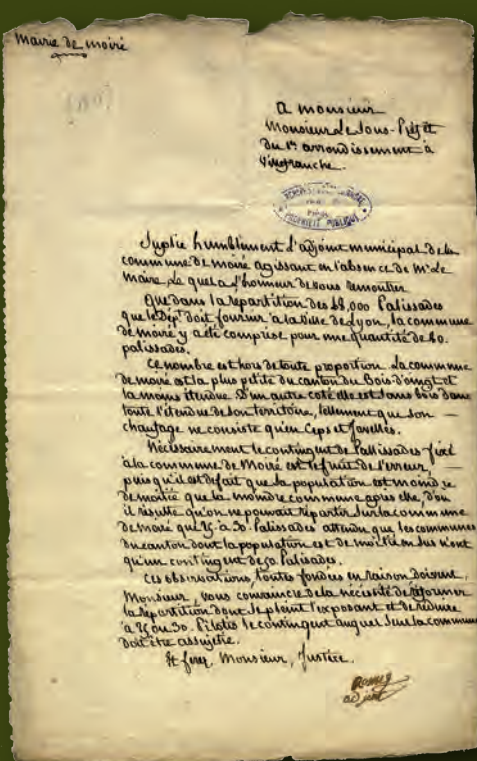 Mairie de moiré
a monsieur
Monsieur Le Sous-Préfet
du 1er arrondissement à
Villefranche.
PROPRIÉTÉ PUBLIQUE
Suplie humblement l'adjoint municipal de la
commune de moiré agissant en l'absence de Mr Le
maire, Le quel a l'honneur de vous remontrer
Que dans la repartition des 48,000 Palissades
que le Dépt doit fournir à la Ville de Lyon, la commune
de moiré y a été comprise pour une quantité de 80.
palissades.
Ce nombre est hors de toute proportion. La commune
de moiré est la plus petite du canton du Bois d'oingt et
la moins étendue. D'un autre coté elle est sans bois dans
toute l'étendue de son territoire, tellement que son —
chaufage ne consiste qu'en Ceps et favelles.
Nécessairement le contingent de Pallissades fixé
à la commune de Moiré est le fruit de l'erreur, —
puis qu'il est de fait que la population est moindre
de moitié que la moindre commune après elle, d'ou
il résulte qu'on ne pouvait répartir sur la commune
de moiré que 25 à 30. Palissades attendu que les communes
du canton dont la population est de moitié en sus n'ont
qu'un contingent de 50. Palisades.
Ces observations, toutes fondées en raison doivent,
Monsieur, vous convaincre de la nécessité de réformer
la répartition dont se plaint l'exposant et de réduire
à 25 ou 30. Pilotis le contingent auquel seul la commune
doit être assujetie.
Et ferez, Monsieur, Justice.
adjoint